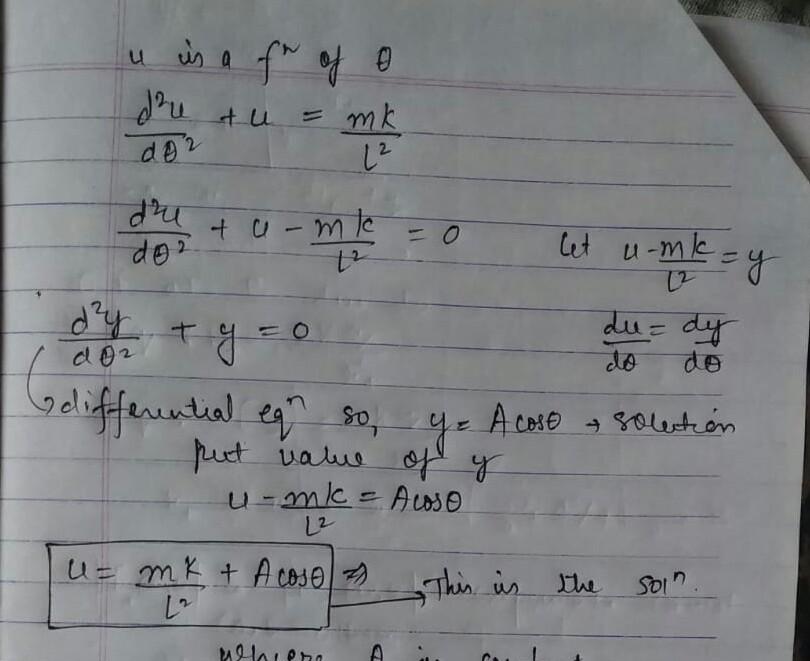 u is a fⁿ of θ
d²u/dθ² + u = mk/l²
d²u/dθ² + u - mk/l² = 0 let u - mk/l² = y
d²y/dθ² + y = 0 du/dθ = dy/dθ
↳ differential eqⁿ so, y = A cosθ → solution
put value of y
u - mk/l² = A cosθ
u = mk/l² + A cosθ ⇒ This is the solⁿ.
where A is